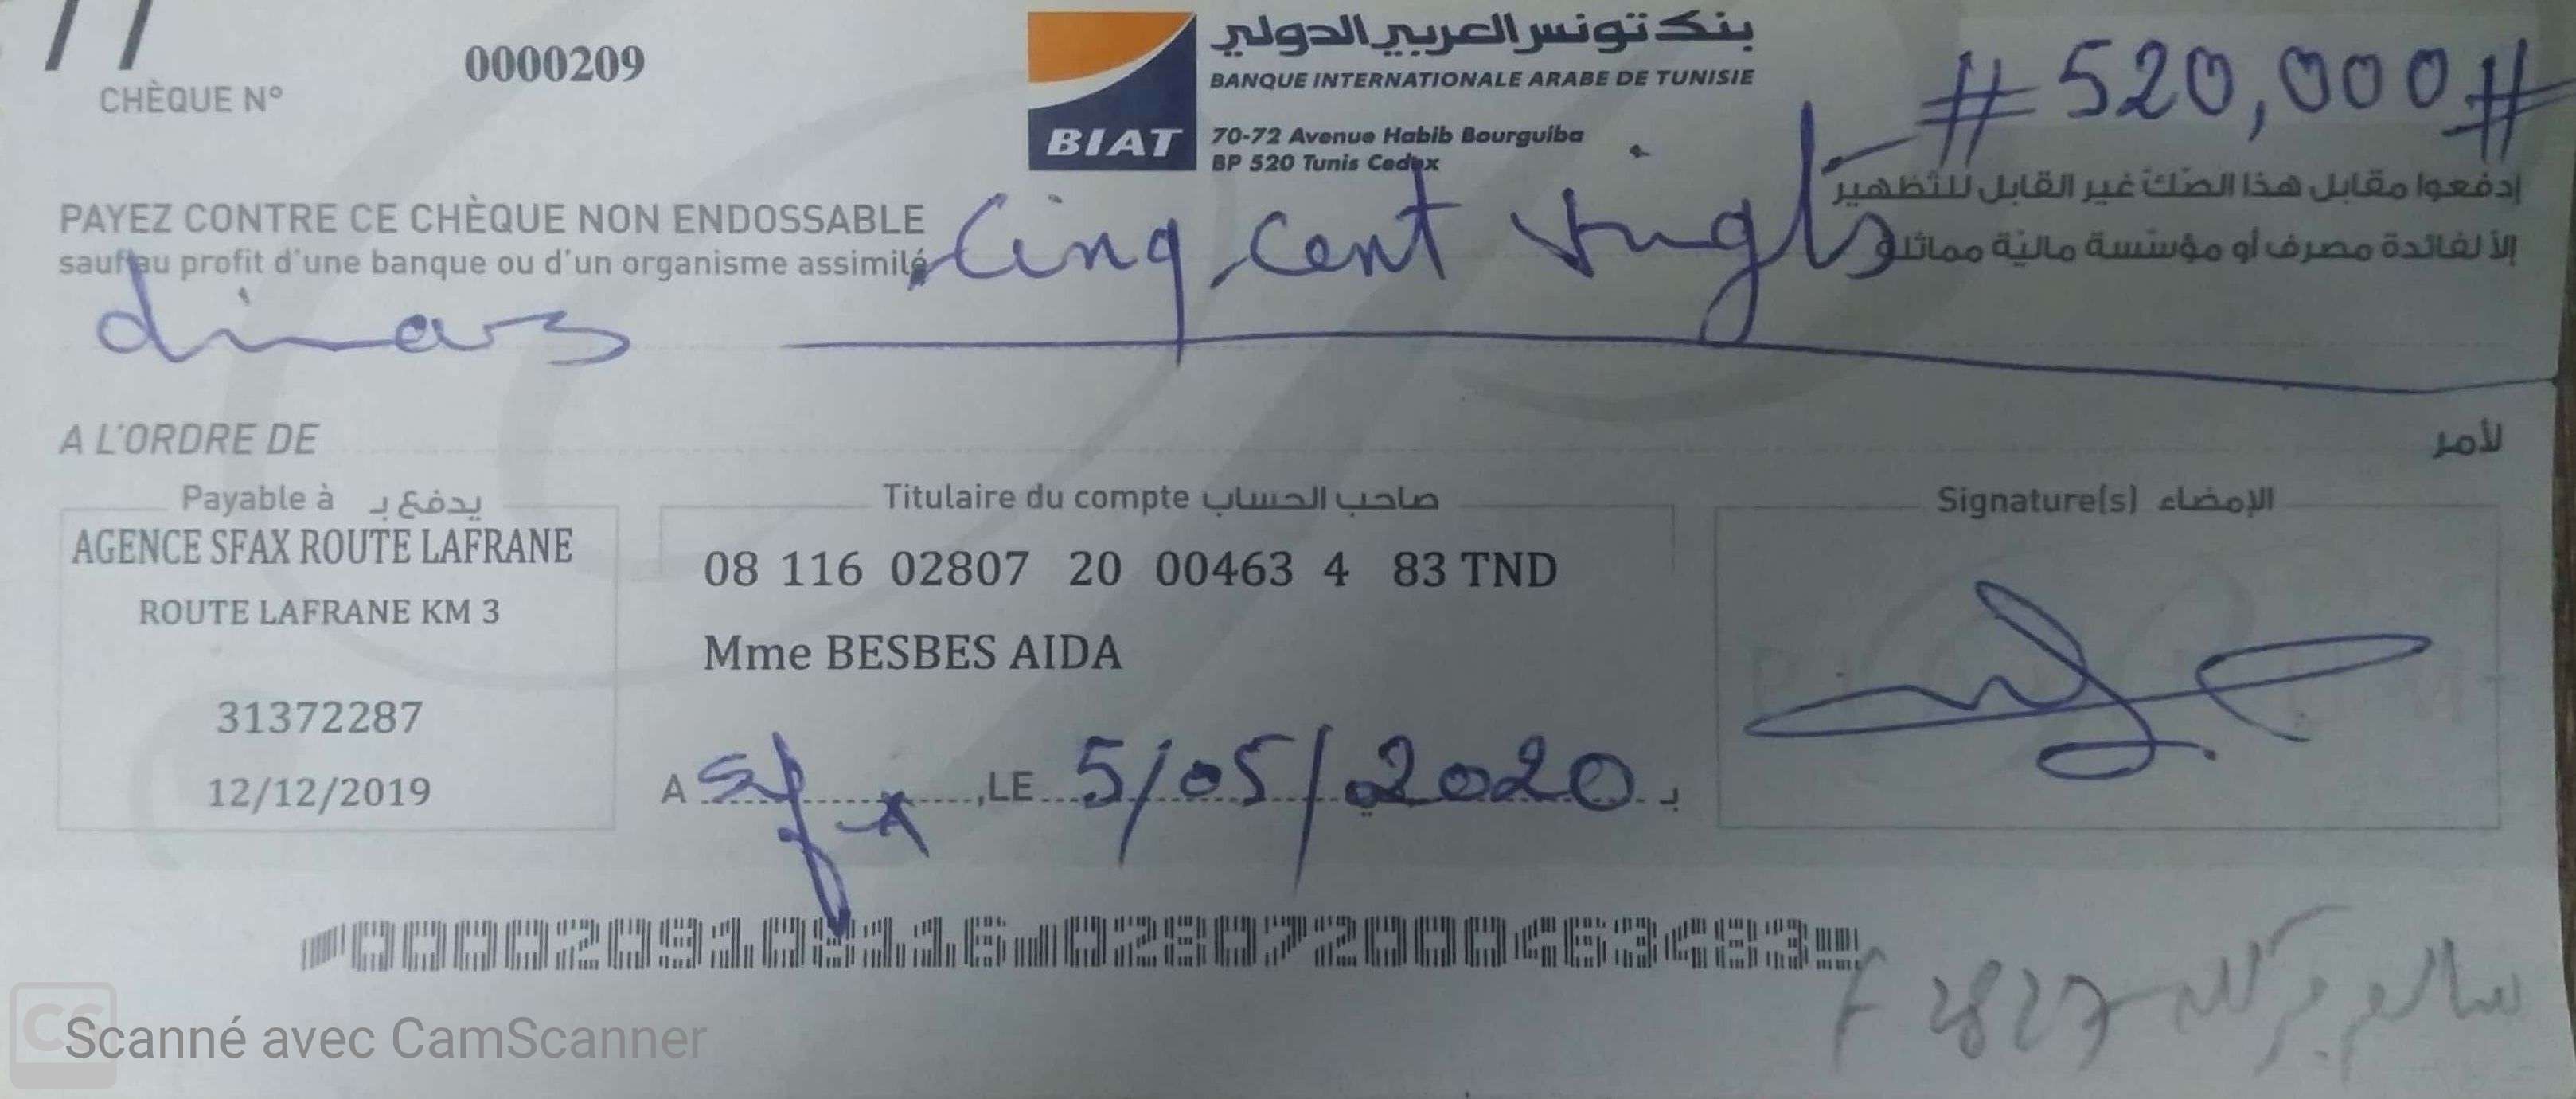 CHÈQUE N° 0000209
بنك تونس العربي الدولي
BANQUE INTERNATIONALE ARABE DE TUNISIE
BIAT
70-72 Avenue Habib Bourguiba
BP 520 Tunis Cedex
# 520,000 #
PAYEZ CONTRE CE CHÈQUE NON ENDOSSABLE
sauf au profit d'une banque ou d'un organisme assimilé
إدفعوا مقابل هذا الصّكّ غير القابل للتّظهير
إلاّ لفائدة مصرف أو مؤسّسة ماليّة مماثلة
Cinq cent vingt
dinars
A L'ORDRE DE لأمر
Payable à يدفع بـ
AGENCE SFAX ROUTE LAFRANE
ROUTE LAFRANE KM 3
31372287
12/12/2019
Titulaire du compte صاحب الحساب
08 116 02807 20 00463 4 83 TND
Mme BESBES AIDA
A Sfx ,LE 5/05/2020 بـ
Signature(s) الإمضاء
0000209108116028072000463483
Scanné avec CamScanner
CS